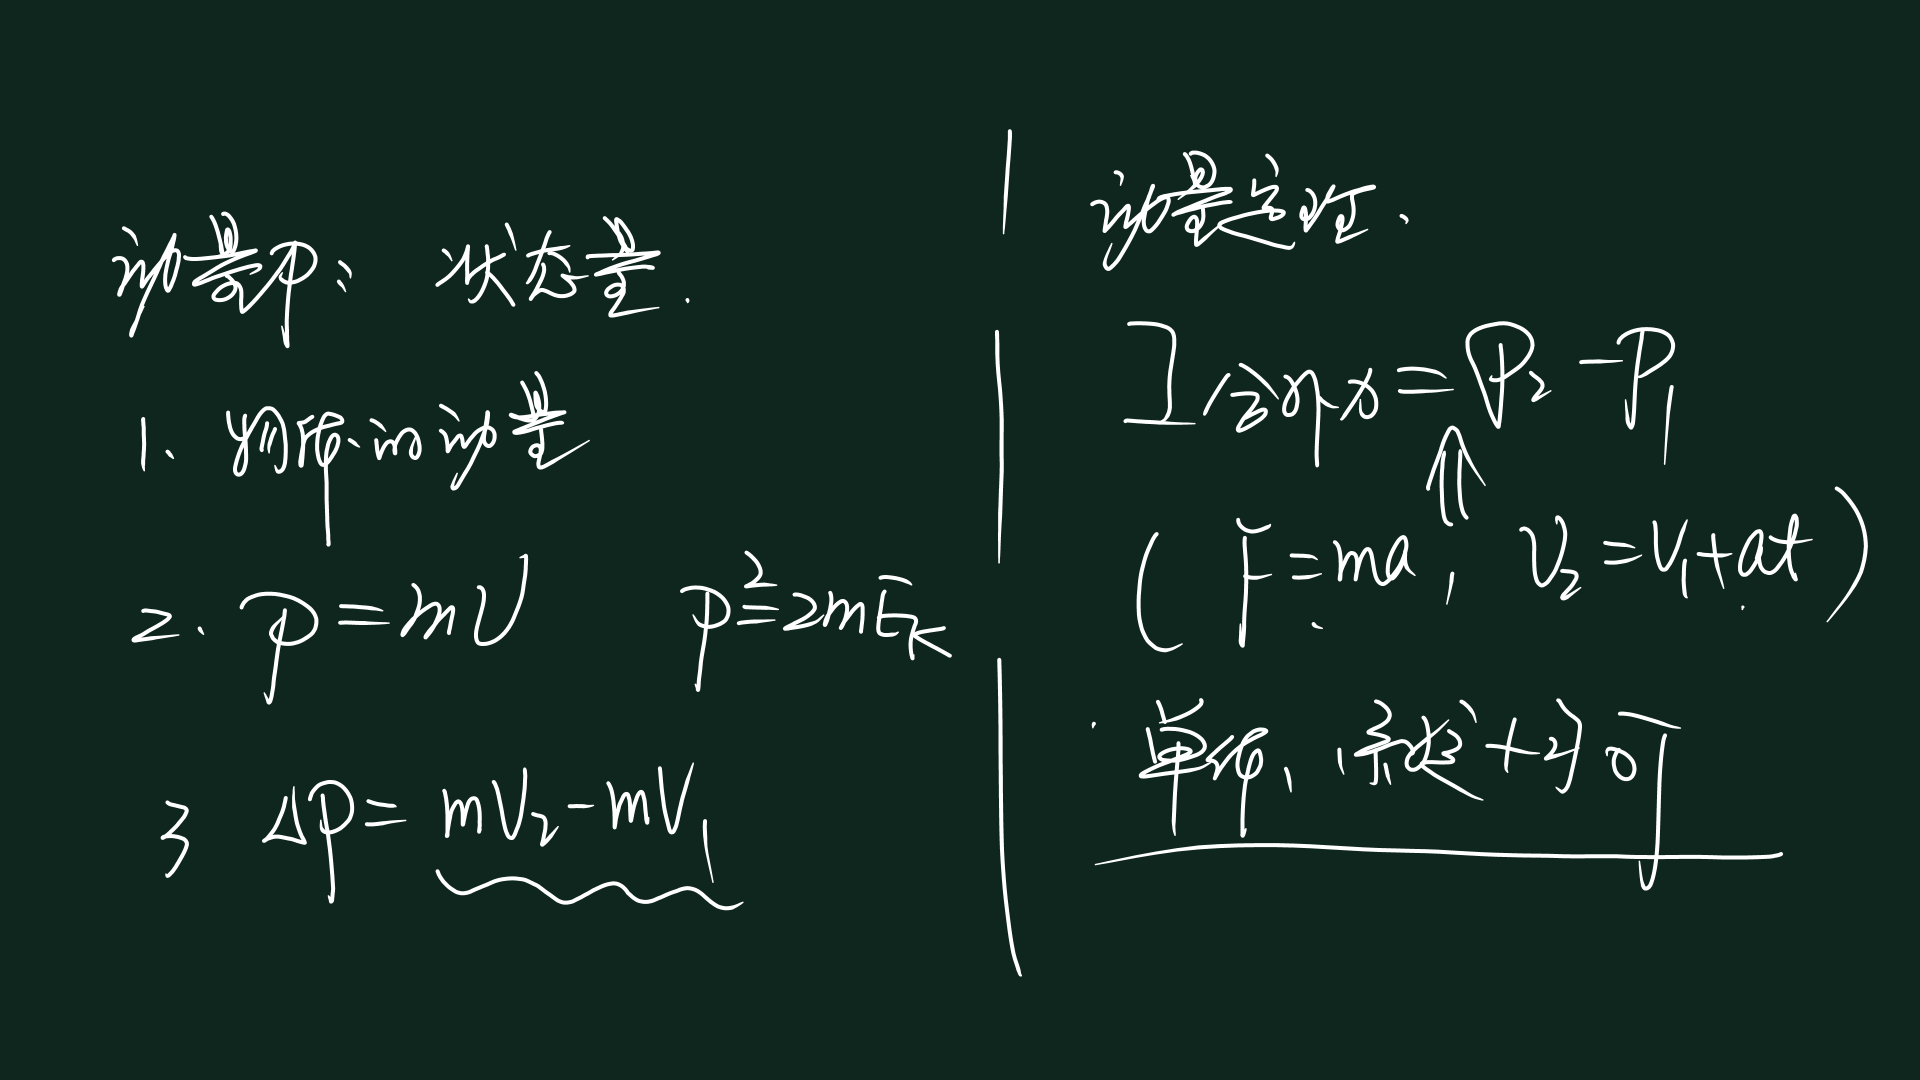 动量P: 状态量.
1、物体的动量
2. P=mv P²=2mEₖ
3 ΔP=mV₂-mV₁
动量定理.
I合外=P₂-P₁
⇑
(F=ma, V₂=V₁+at)
单体、系统均可